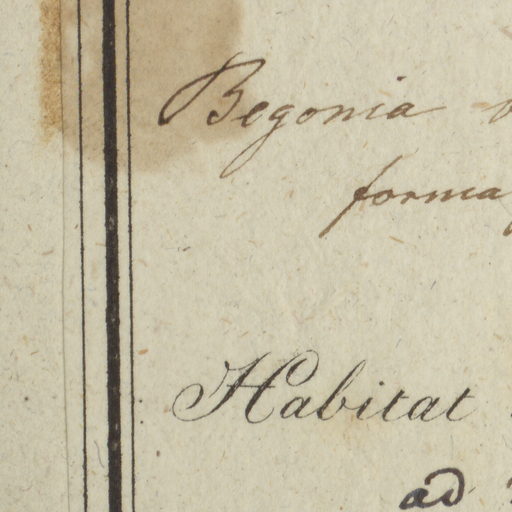 Begonia
forma
Habitat
ad